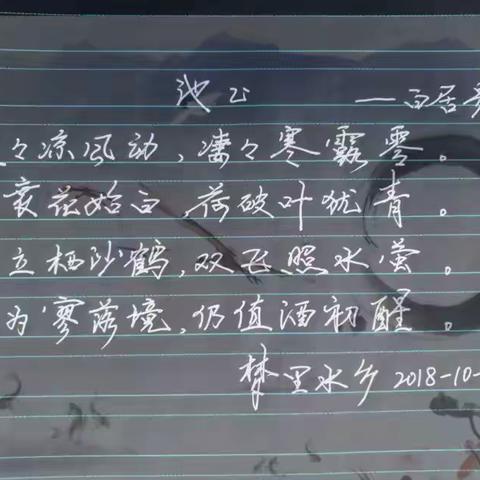 池上 —白居易
々凉风动，凄々寒露零。
衰花始白，荷破叶犹青。
立栖沙鹤，双飞照水萤。
为寥落境，仍值酒初醒。
梦里水乡 2018-10-